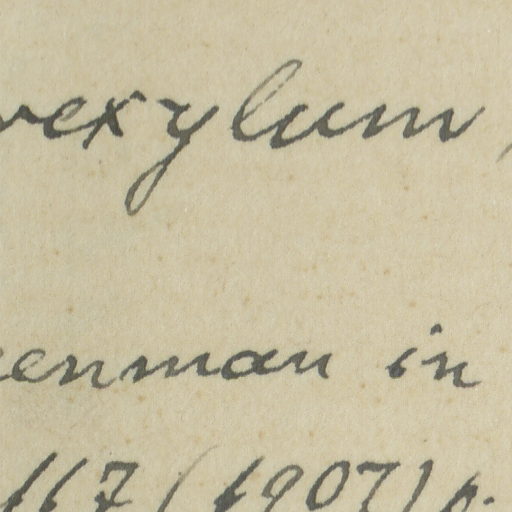 vexylum,
eenman in
167 (1907) p.